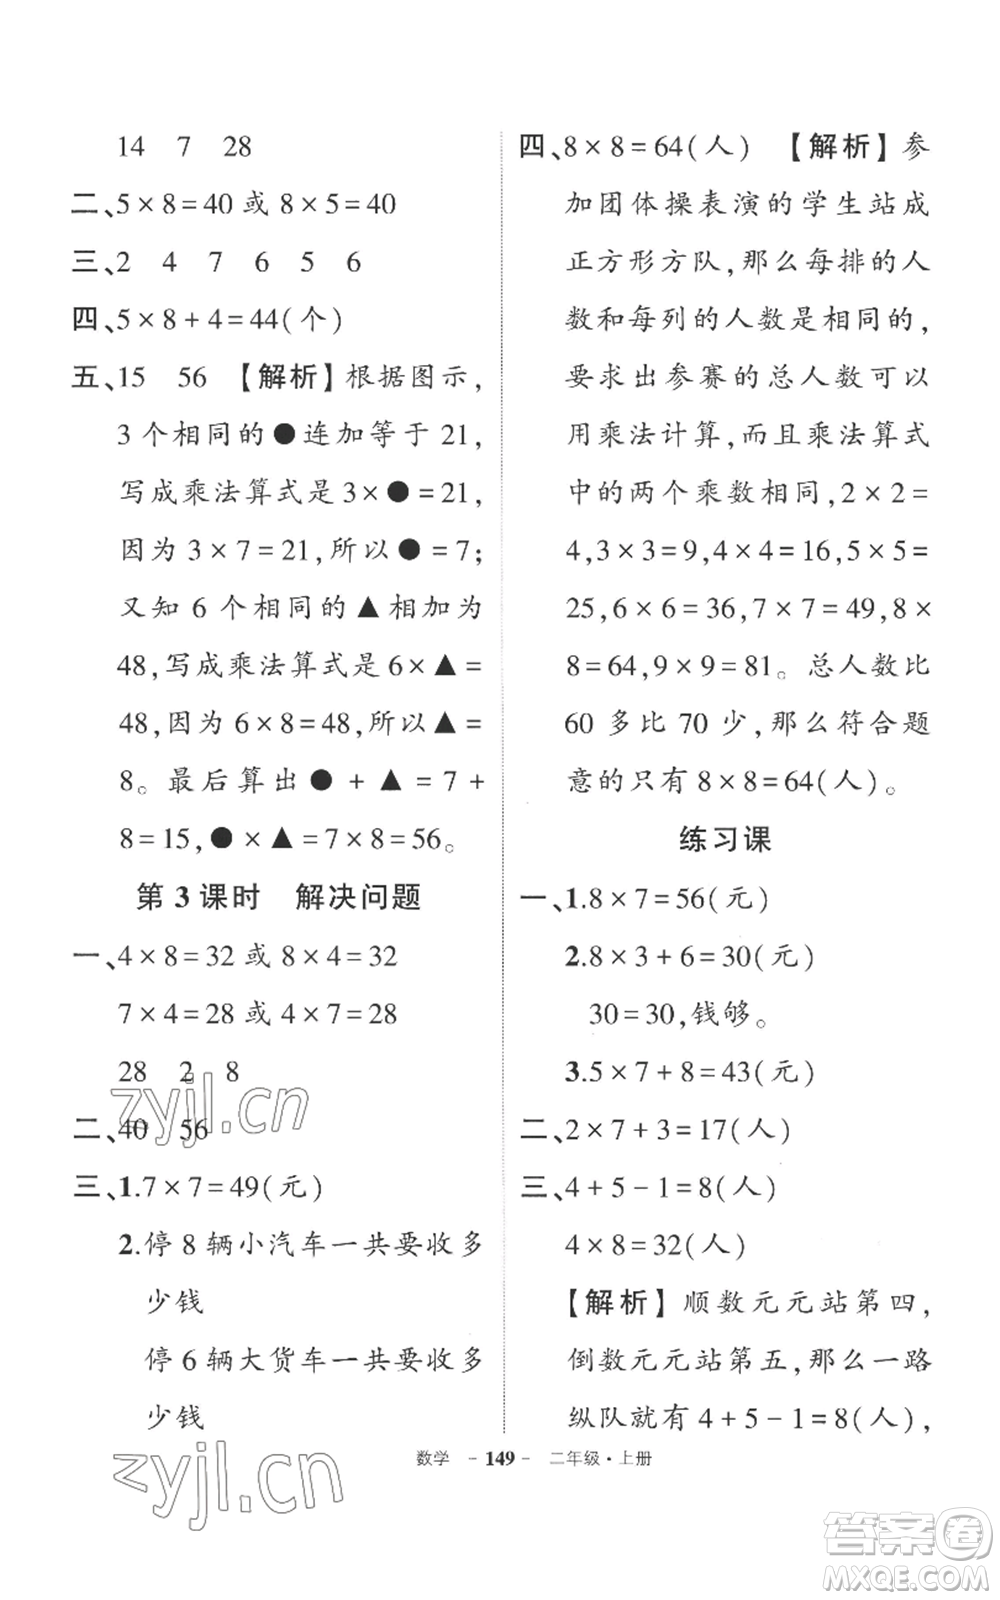 14 7 28
二、5×8=40 或 8×5=40
三、2 4 7 6 5 6
四、5×8+4=44(个)
五、15 56 【解析】根据图示,
3 个相同的●连加等于 21,
写成乘法算式是 3×●=21,
因为 3×7=21,所以●=7;
又知 6 个相同的▲相加为
48,写成乘法算式是 6×▲=
48,因为 6×8=48,所以▲=
8。最后算出●+▲=7+
8=15,●×▲=7×8=56。
第 3 课时 解决问题
一、4×8=32 或 8×4=32
7×4=28 或 4×7=28
28 2 8
二、40 56
三、1.7×7=49(元)
2.停 8 辆小汽车一共要收多
少钱
停 6 辆大货车一共要收多
少钱
四、8×8=64(人) 【解析】参
加团体操表演的学生站成
正方形方队,那么每排的人
数和每列的人数是相同的,
要求出参赛的总人数可以
用乘法计算,而且乘法算式
中的两个乘数相同,2×2=
4,3×3=9,4×4=16,5×5=
25,6×6=36,7×7=49,8×
8=64,9×9=81。总人数比
60 多比 70 少,那么符合题
意的只有 8×8=64(人)。
练习课
一、1.8×7=56(元)
2.8×3+6=30(元)
30=30,钱够。
3.5×7+8=43(元)
二、2×7+3=17(人)
三、4+5-1=8(人)
4×8=32(人)
【解析】顺数元元站第四,
倒数元元站第五,那么一路
纵队就有 4+5-1=8(人),
数学 -149- 二年级·上册
zyjl.cn
zyjl.cn
答案卷
MXQE.COM